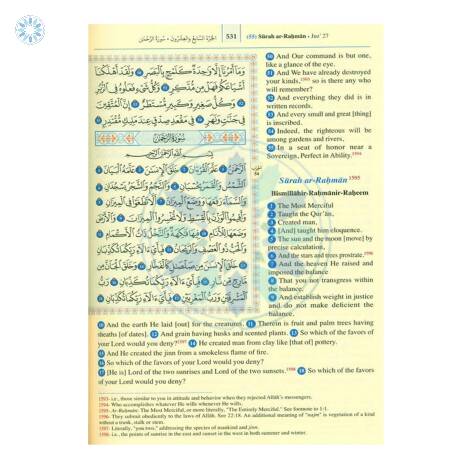 الجزء السابع والعشرون - سورة الرحمن
531
(55) Sūrah ar-Raḥmān - Juz' 27
وَمَا أَمْرُنَا إِلَّا وَاحِدَةٌ كَلَمْحٍ بِالْبَصَرِ ۝ وَلَقَدْ أَهْلَكْنَا
أَشْيَاعَكُمْ فَهَلْ مِن مُّدَّكِرٍ ۝ وَكُلُّ شَيْءٍ فَعَلُوهُ فِي الزُّبُرِ
۝ وَكُلُّ صَغِيرٍ وَكَبِيرٍ مُّسْتَطَرٌ ۝ إِنَّ الْمُتَّقِينَ
فِي جَنَّاتٍ وَنَهَرٍ ۝ فِي مَقْعَدِ صِدْقٍ عِندَ مَلِيكٍ مُّقْتَدِرٍ ۝
سُورَةُ الرَّحْمَٰن
بِسْمِ اللَّهِ الرَّحْمَٰنِ الرَّحِيمِ
الرَّحْمَٰنُ ۝ عَلَّمَ الْقُرْآنَ ۝ خَلَقَ الْإِنسَانَ ۝ عَلَّمَهُ الْبَيَانَ ۝
الشَّمْسُ وَالْقَمَرُ بِحُسْبَانٍ ۝ وَالنَّجْمُ وَالشَّجَرُ يَسْجُدَانِ ۝
وَالسَّمَاءَ رَفَعَهَا وَوَضَعَ الْمِيزَانَ ۝ أَلَّا تَطْغَوْا فِي الْمِيزَانِ ۝
وَأَقِيمُوا الْوَزْنَ بِالْقِسْطِ وَلَا تُخْسِرُوا الْمِيزَانَ ۝ وَالْأَرْضَ
وَضَعَهَا لِلْأَنَامِ ۝ فِيهَا فَاكِهَةٌ وَالنَّخْلُ ذَاتُ الْأَكْمَامِ ۝
وَالْحَبُّ ذُو الْعَصْفِ وَالرَّيْحَانُ ۝ فَبِأَيِّ آلَاءِ رَبِّكُمَا تُكَذِّبَانِ
۝ خَلَقَ الْإِنسَانَ مِن صَلْصَالٍ كَالْفَخَّارِ ۝ وَخَلَقَ الْجَانَّ مِن
مَّارِجٍ مِّن نَّارٍ ۝ فَبِأَيِّ آلَاءِ رَبِّكُمَا تُكَذِّبَانِ ۝ رَبُّ
الْمَشْرِقَيْنِ وَرَبُّ الْمَغْرِبَيْنِ ۝ فَبِأَيِّ آلَاءِ رَبِّكُمَا تُكَذِّبَانِ ۝
50 And Our command is but one,
like a glance of the eye.
51 And We have already destroyed
your kinds,1593 so is there any who
will remember?
52 And everything they did is in
written records.
53 And every small and great [thing]
is inscribed.
54 Indeed, the righteous will be
among gardens and rivers,
55 In a seat of honor near a
Sovereign, Perfect in Ability.1594
Sūrah ar-Raḥmān1595
Bismillāhir-Raḥmānir-Raḥeem
1 The Most Merciful
2 Taught the Qur'ān,
3 Created man,
4 [And] taught him eloquence.
5 The sun and the moon [move] by
precise calculation,
6 And the stars and trees prostrate.1596
7 And the heaven He raised and
imposed the balance
8 That you not transgress within
the balance.
9 And establish weight in justice
and do not make deficient the
balance.
10 And the earth He laid [out] for the creatures. 11 Therein is fruit and palm trees having
sheaths [of dates]. 12 And grain having husks and scented plants. 13 So which of the favors of
your Lord would you deny?1597 14 He created man from clay like [that of] pottery.
15 And He created the jinn from a smokeless flame of fire.
16 So which of the favors of your Lord would you deny?
17 [He is] Lord of the two sunrises and Lord of the two sunsets.1598 18 So which of the favors
of your Lord would you deny?
1593- i.e., those similar to you in attitude and behavior when they rejected Allāh's messengers.
1594- Who accomplishes whatever He wills whenever He wills.
1595- Ar-Raḥmān: The Most Merciful, or more literally, "The Entirely Merciful." See footnote to 1:1.
1596- They submit obediently to the laws of Allāh. See 22:18. An additional meaning of "najm" is vegetation of a kind
without a trunk, stalk or stem.
1597- Literally, "you two," addressing the species of mankind and jinn.
1598- i.e., the points of sunrise in the east and sunset in the west in both summer and winter.